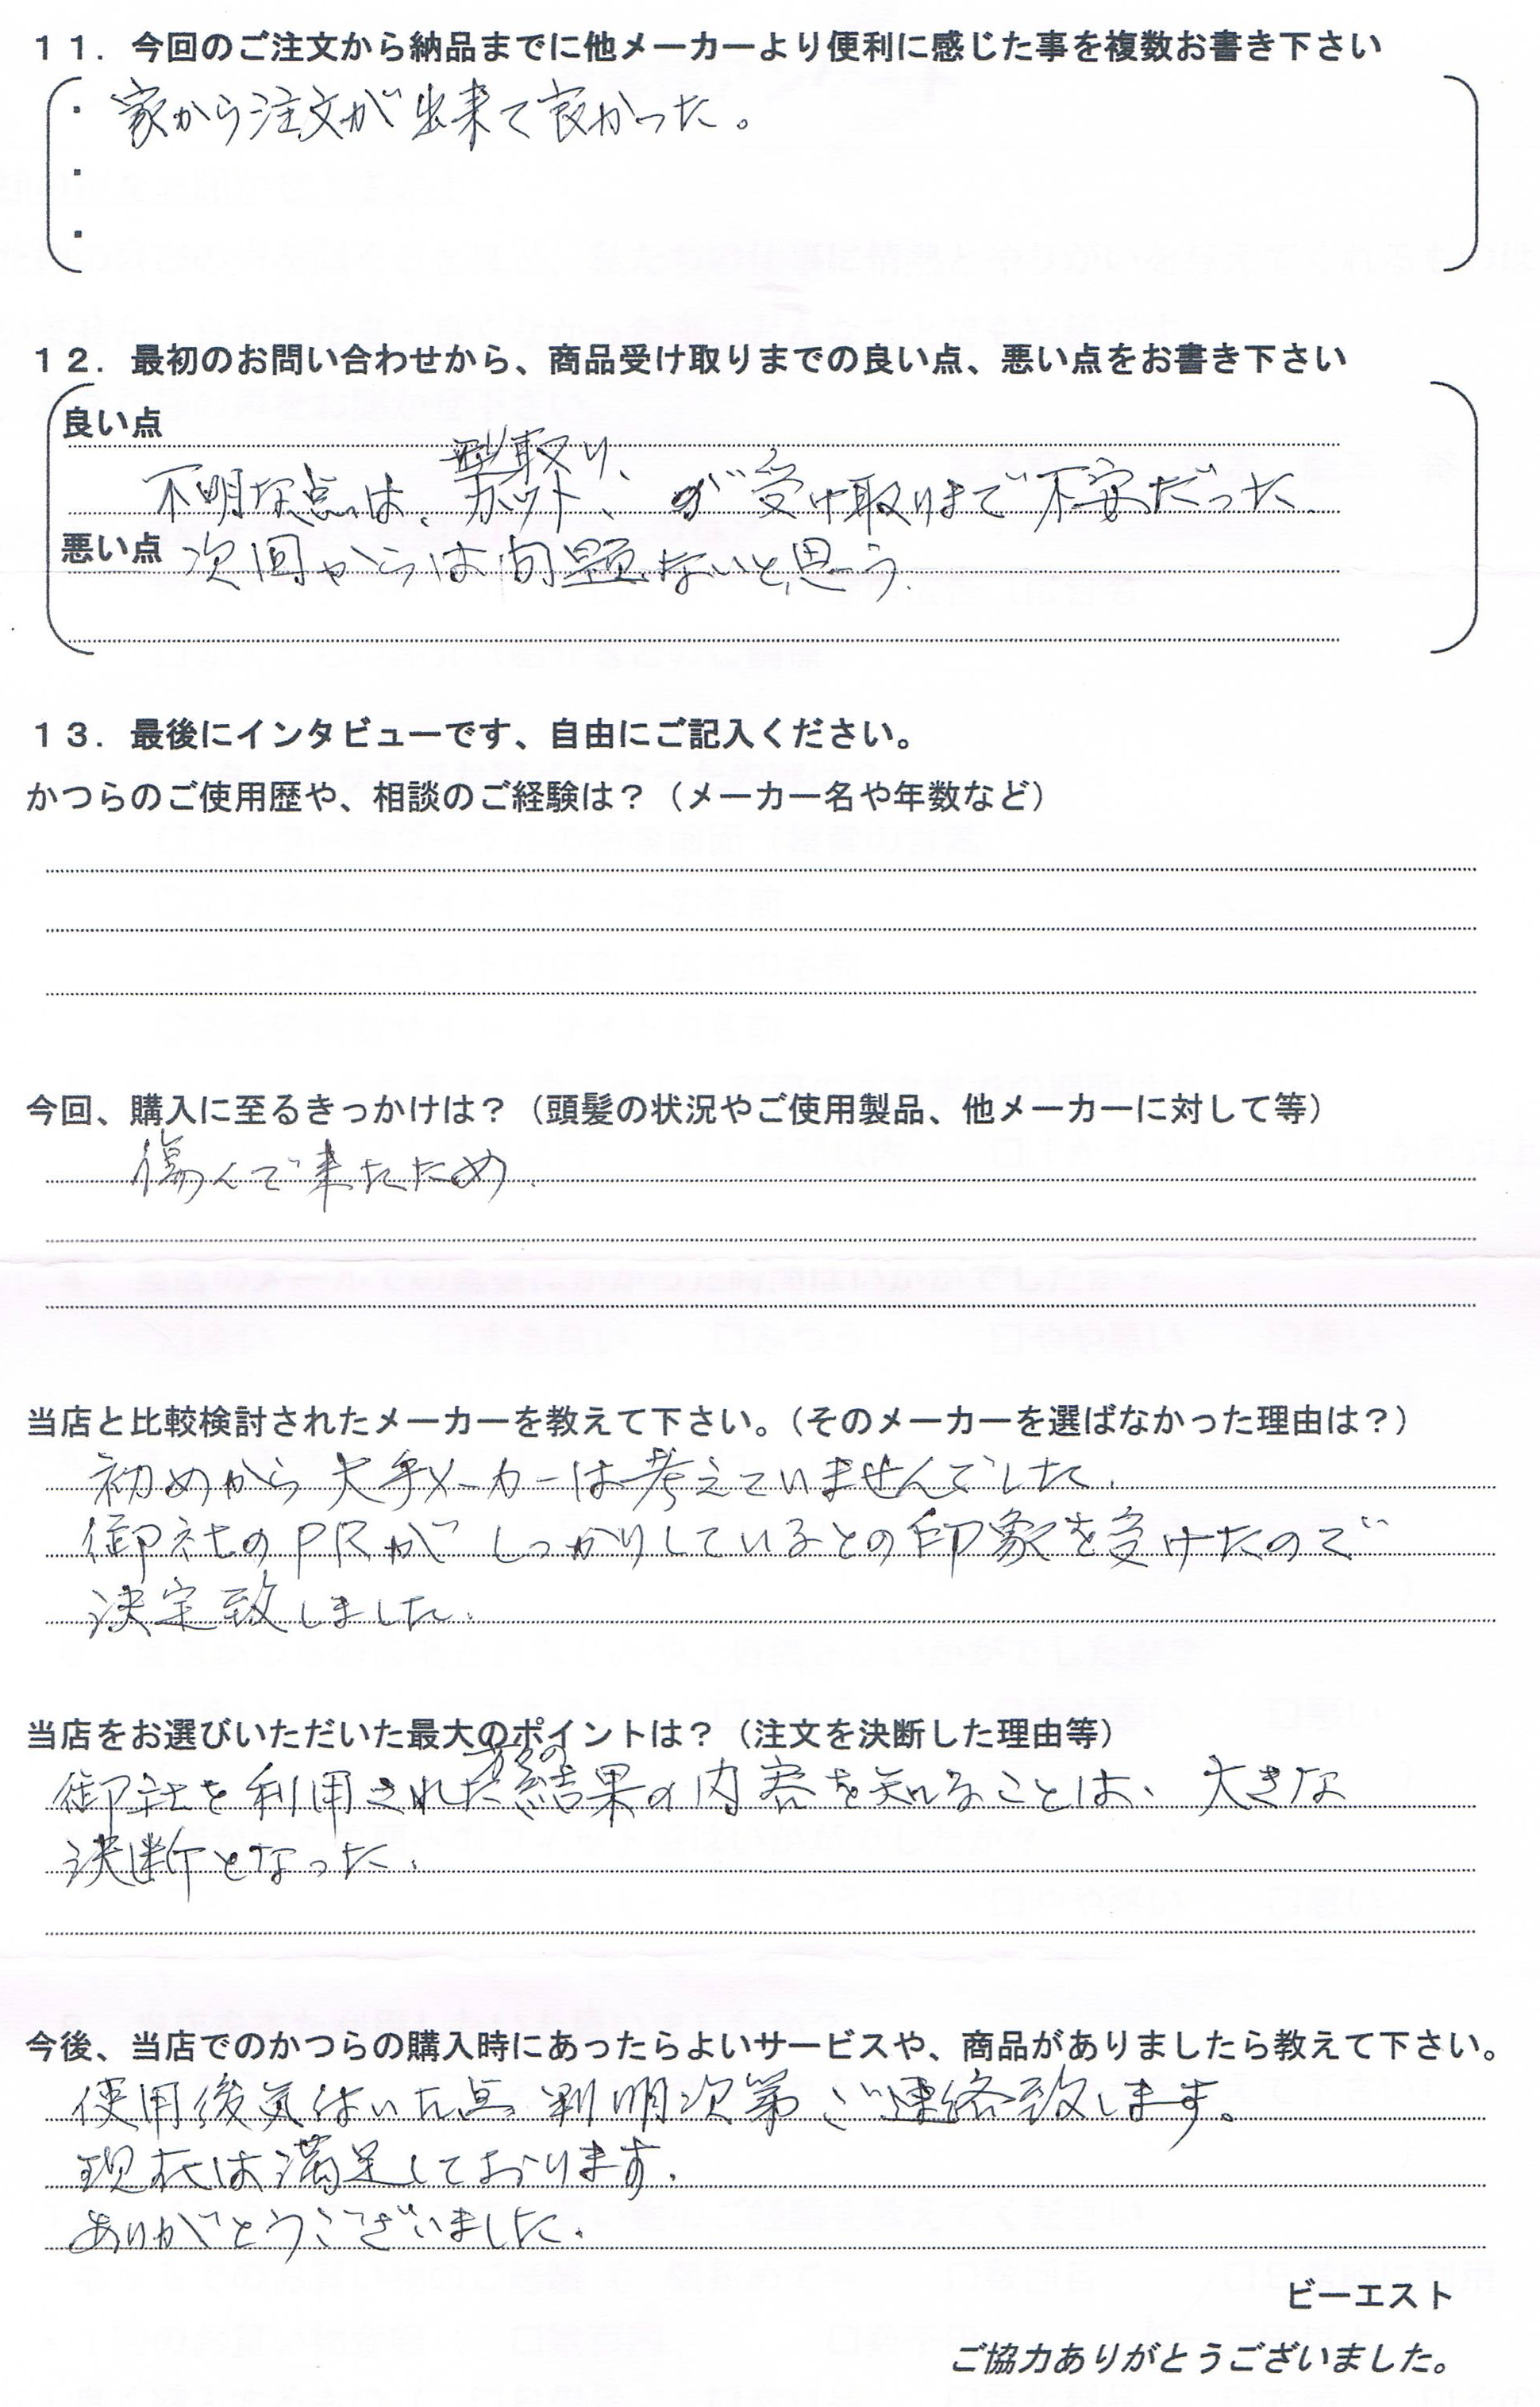 １１．今回のご注文から納品までに他メーカーより便利に感じた事を複数お書き下さい
・家から注文が出来て良かった。
・
・
１２．最初のお問い合わせから、商品受け取りまでの良い点、悪い点をお書き下さい
良い点
型取り、
不明な点は、カット、が受け取りまで不安だった
悪い点 次回からは問題ないと思う。
１３．最後にインタビューです、自由にご記入ください。
かつらのご使用歴や、相談のご経験は？（メーカー名や年数など）
今回、購入に至るきっかけは？（頭髪の状況やご使用製品、他メーカーに対して等）
傷んで来たため．
当店と比較検討されたメーカーを教えて下さい。（そのメーカーを選ばなかった理由は？）
初めから大手メーカーは考えていませんでした．
御社のPRがしっかりしているとの印象を受けたので
決定致しました．
当店をお選びいただいた最大のポイントは？（注文を決断した理由等）
方々の
御社を利用された結果の内容を知ることは、大きな
決断となった．
今後、当店でのかつらの購入時にあったらよいサービスや、商品がありましたら教えて下さい。
使用後気付いた点、判明次第ご連絡致します。
現在は満足しております．
ありがとうございました．
ビーエスト
ご協力ありがとうございました。